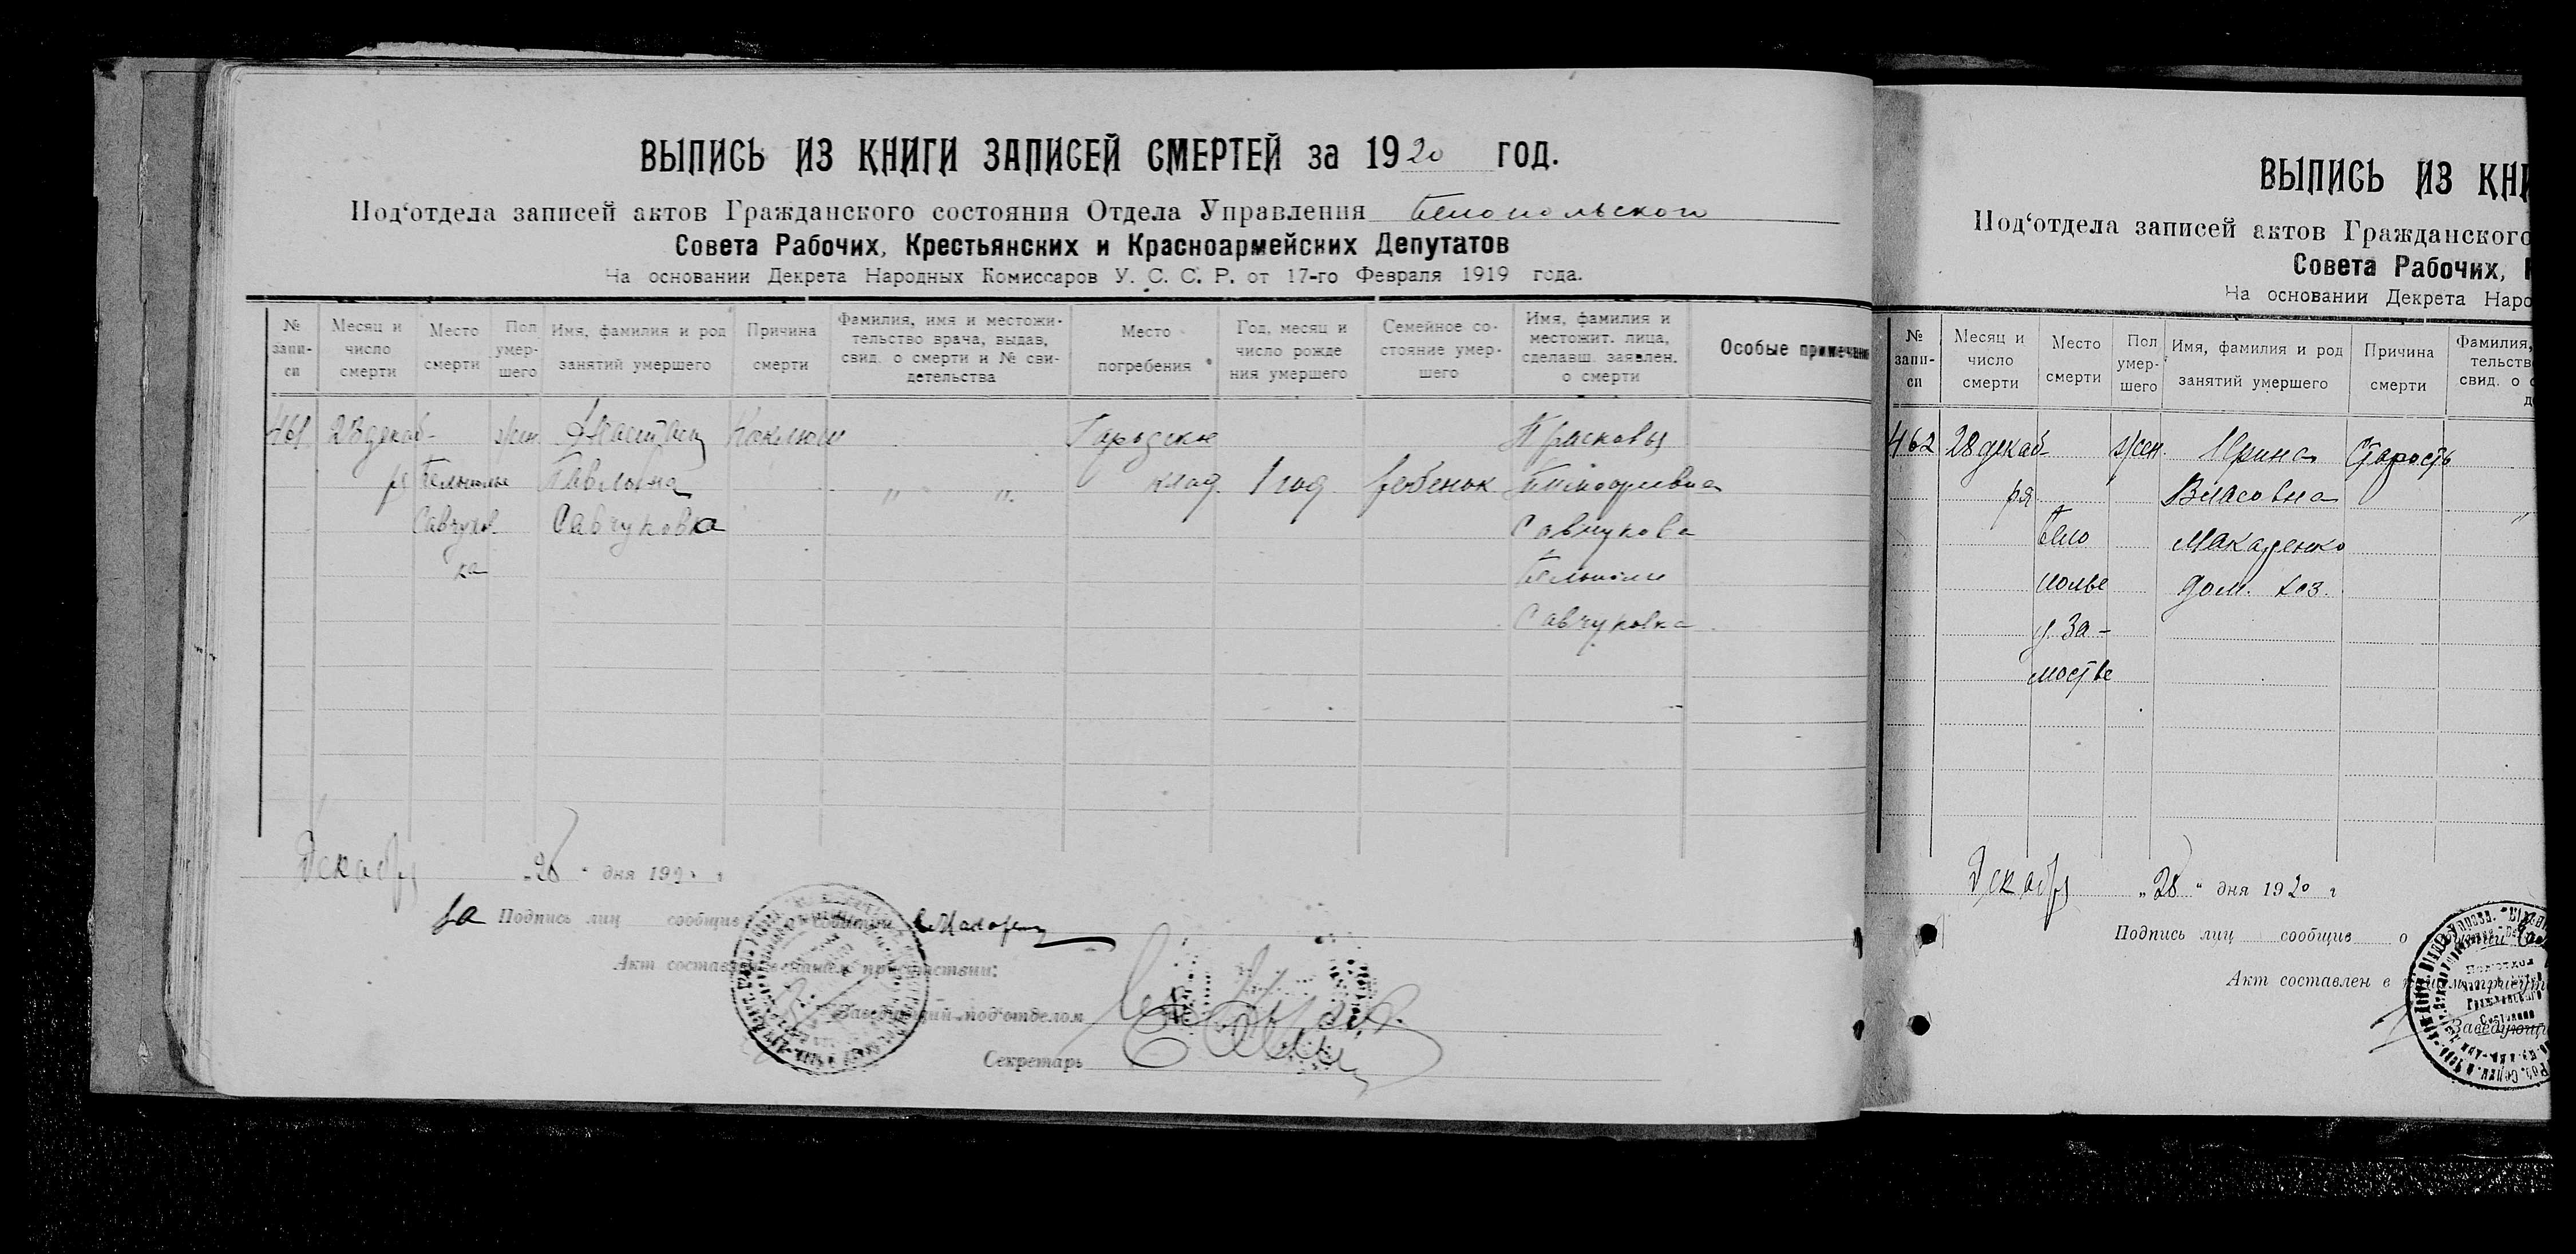 ВЫПИСЬ ИЗ КНИГИ ЗАПИСЕЙ СМЕРТЕЙ за 1920 год.
Под‘отдела записей актов Гражданского состояния Отдела Управления Белопольского
Совета Рабочих, Крестьянских и Красноармейских Депутатов
На основании Декрета Народных Комиссаров У. С. С. Р. от 17-го Февраля 1919 года.
№ запи-си
Месяц и число смерти
Место смерти
Пол умер-шего
Имя, фамилия и род занятий умершего
Причина смерти
Фамилия, имя и местожи-тельство врача, выдав, свид. о смерти и № сви-детельства
Место погребения
Год, месяц и число рожде ния умершего
Семейное со-стояние умер-шего
Имя, фамилия и местожит. лица, сделавш. заявлен. о смерти
Особые примечани
461 28 декаб- жен. Коклюш Городское Прасковья
ря Белополье Павловна „ „ клад. 1 год ребенок
Савчуков Савчукова Савчукова
ка Белополье
Савчуковка
Декабря „28“ дня 1920 г
за Подпись лиц сообщив
Акт составлен в нашем присутствии:
Заведующий под‘отделом
Секретарь
ВЫПИСЬ ИЗ КНИ
Под‘отдела записей актов Гражданского
Совета Рабочих, К
На основании Декрета Наро
№ запи-си
Месяц и число смерти
Место смерти
Пол умер-шего
Имя, фамилия и род занятий умершего
Причина смерти
Фамилия, тельств свид. о с д
462 28 декаб- жен. Ирина Старость
ря Власовна „
Бело Макаренко
полье дом. хоз.
у. За-
мостье
Декабря „28“ дня 1920 г
Подпись лиц сообщив о
Акт составлен в
Заведующи